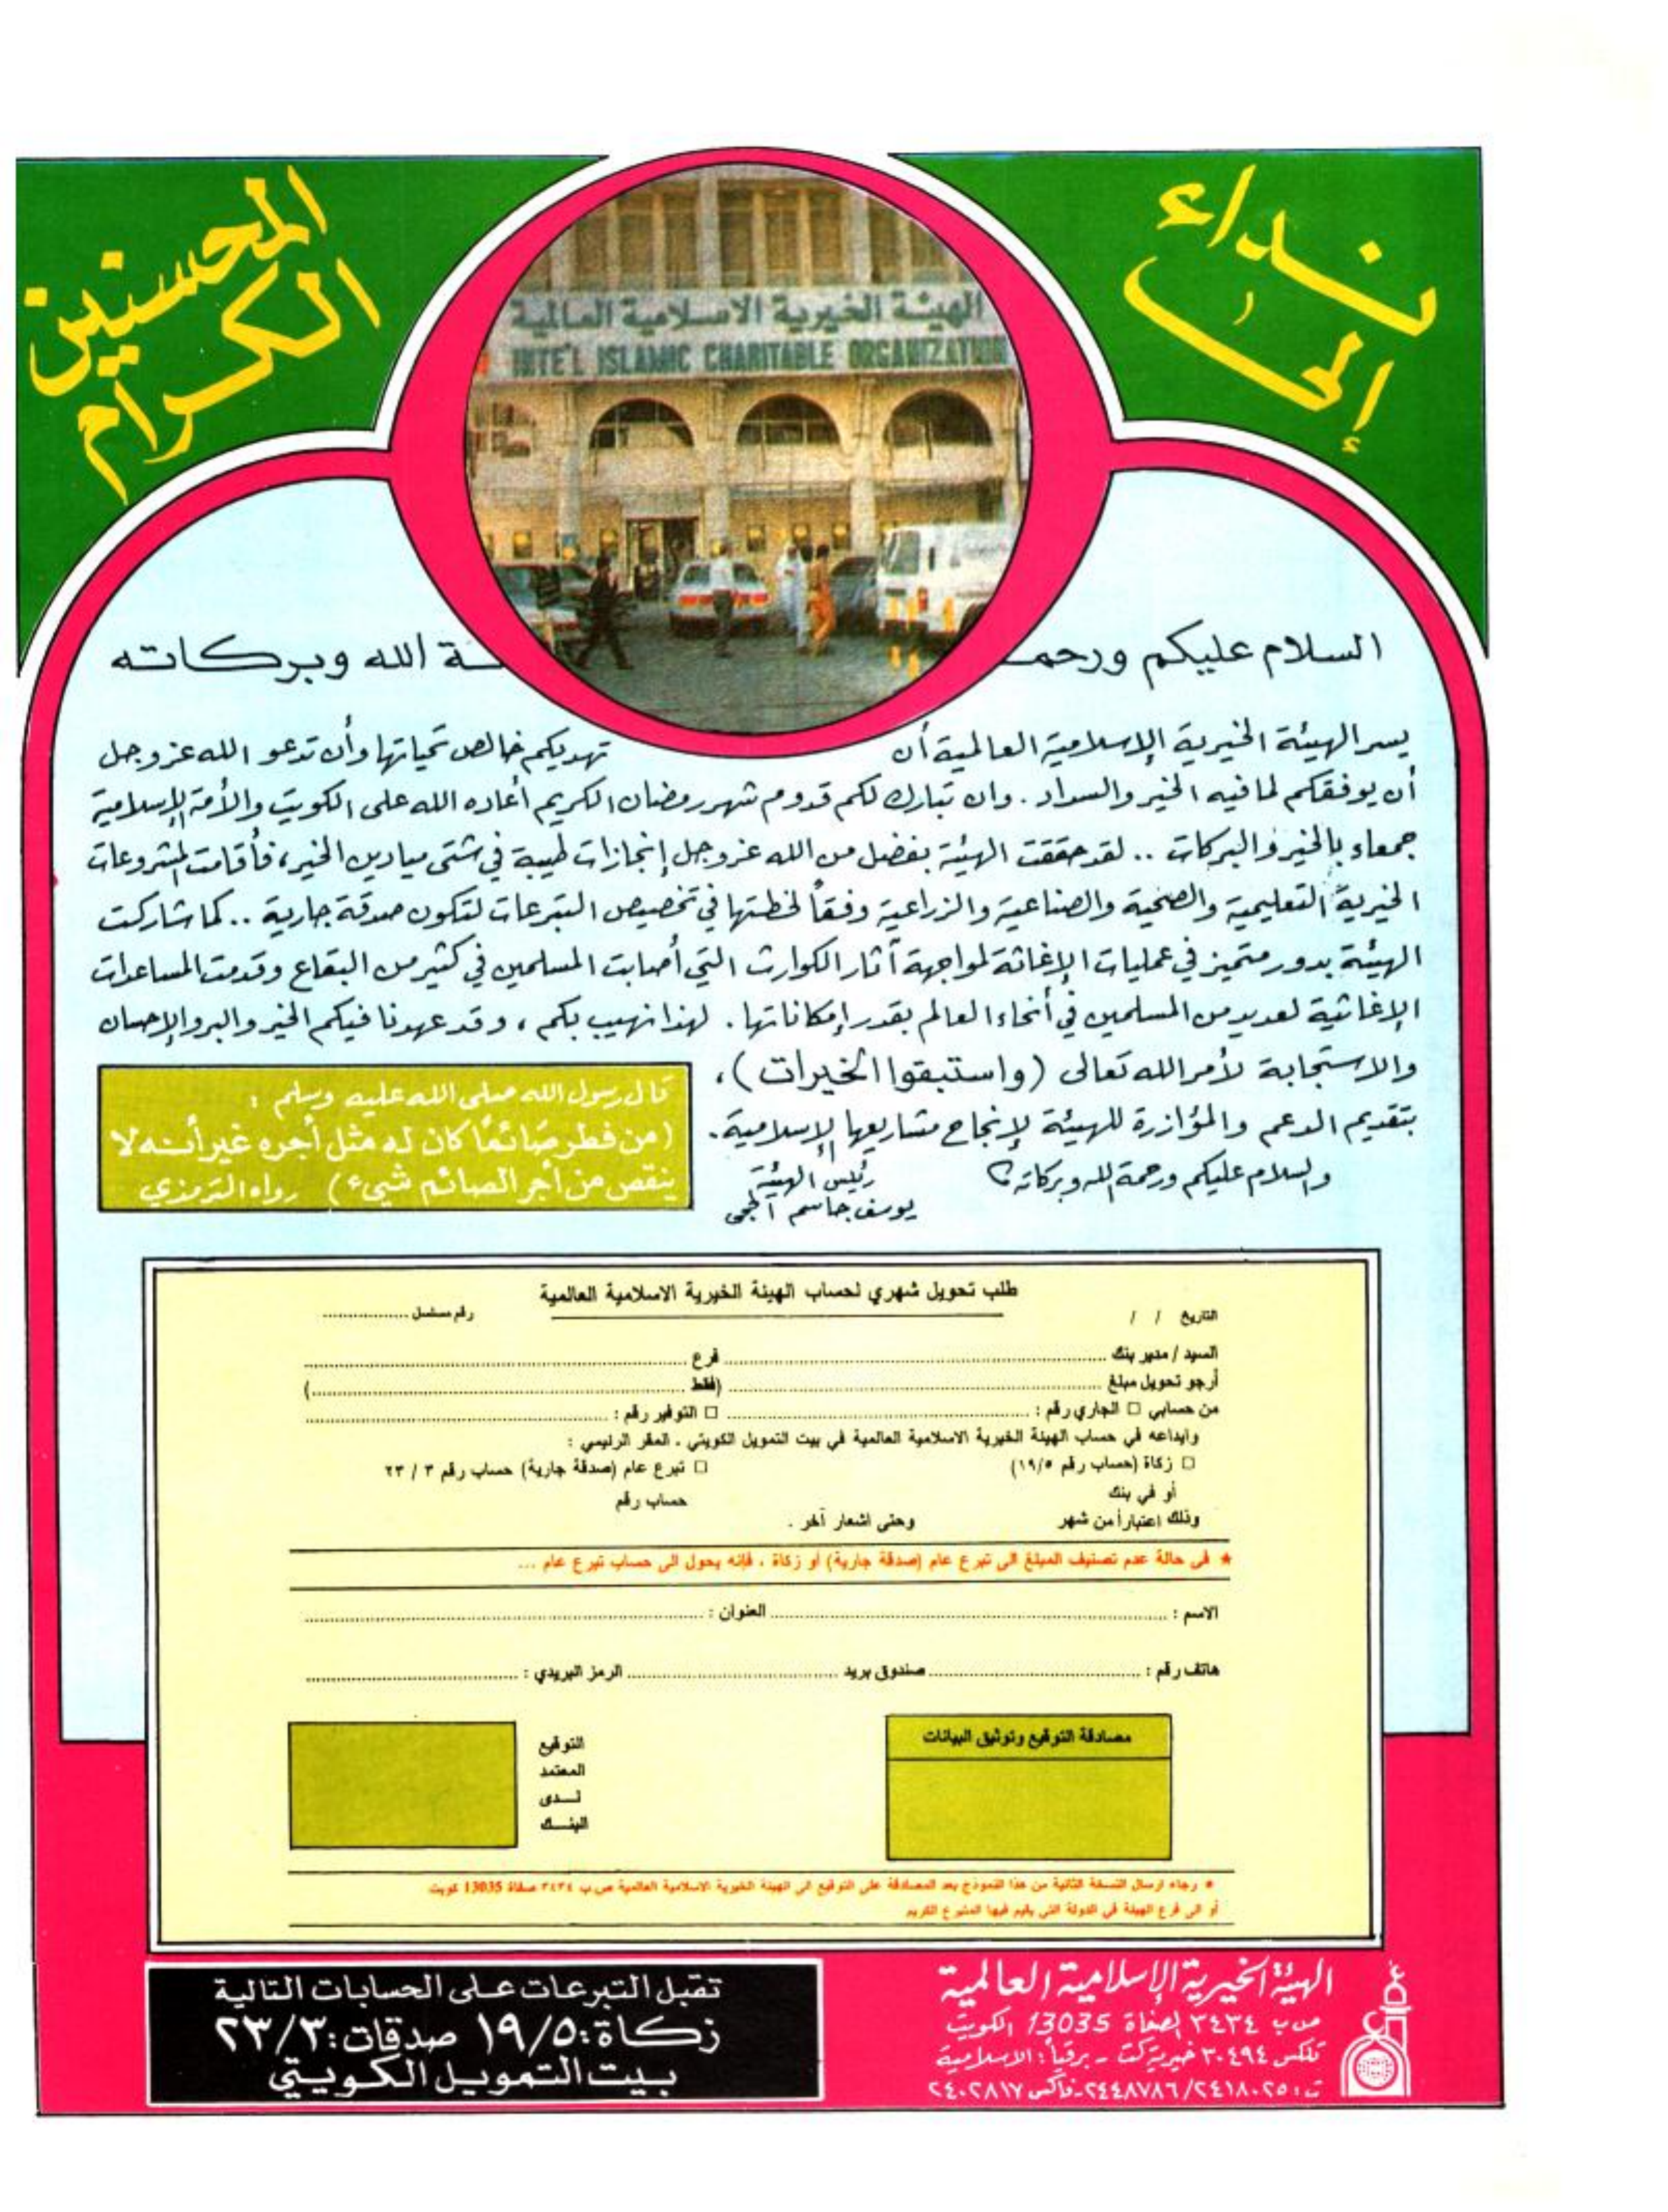 نداء
إلى
المحسنين
الكرام
الهيئة الخيرية الاسلامية العالمية
INTE'L ISLAMIC CHARITABLE ORGANIZATION
السلام عليكم ورحمـــة الله وبركاته
يسر الهيئة الخيرية الإسلامية العالمية أن تهديكم خالص تحياتها وأن تدعو الله عز وجل
أن يوفقكم لما فيه الخير والسداد . وان تبارك لكم قدوم شهر رمضان الكريم أعاده الله على الكويت والأمة الإسلامية
جمعاء بالخير والبركات .. لقد حققت الهيئة بفضل من الله عز وجل إنجازات طيبة في شتى ميادين الخير، فأقامت المشروعات
الخيرية التعليمية والصحية والصناعية والزراعية وفقاً لخطتها في تخصيص التبرعات لتكون صدقة جارية .. كما شاركت
الهيئة بدور متميز في عمليات الإغاثة لمواجهة آثار الكوارث التي أصابت المسلمين في كثير من البقاع وقدمت المساعدات
الإغاثية لعديد من المسلمين في أنحاء العالم بقدر إمكاناتها . لهذا نهيب بكم ، وقد عهدنا فيكم الخير والبر والإحسان
والاستجابة لأمر الله تعالى (واستبقوا الخيرات) ،
بتقديم الدعم والمؤازرة للهيئة لإنجاح مشاريعها الإسلامية .
والسلام عليكم ورحمة الله وبركاته
رئيس الهيئة
يوسف جاسم الحجي
قال رسول الله صلى الله عليه وسلم :
(من فطر صائمًا كان له مثل أجره غير أنه لا
ينقص من أجر الصائم شيء) رواه الترمذي
طلب تحويل شهري لحساب الهيئة الخيرية الاسلامية العالمية
التاريخ / / رقم مسلسل ................
السيد / مدير بنك ................ فرع ................
أرجو تحويل مبلغ ................ (فقط ................)
من حسابي □ الجاري رقم : ................ □ التوفير رقم : ................
وايداعه في حساب الهيئة الخيرية الاسلامية العالمية في بيت التمويل الكويتي . المقر الرئيسي :
□ زكاة (حساب رقم ١٩/٥) □ تبرع عام (صدقة جارية) حساب رقم ٣ / ٢٣
أو في بنك حساب رقم
وذلك اعتباراً من شهر وحتى اشعار آخر .
★ في حالة عدم تصنيف المبلغ الى تبرع عام (صدقة جارية) أو زكاة ، فإنه يحول الى حساب تبرع عام ...
الاسم : ................ العنوان : ................
هاتف رقم : ................ صندوق بريد ................ الرمز البريدي : ................
مصادقة التوقيع وتوثيق البيانات
التوقيع
المعتمد
لــدى
البنــك
★ رجاء ارسال النسخة الثانية من هذا النموذج بعد المصادقة على التوقيع الى الهيئة الخيرية الاسلامية العالمية ص.ب ٣٤٣٤ صفاة 13035 كويت
أو الى فرع الهيئة في الدولة التي يقيم فيها المتبرع الكريم
الهيئة الخيرية الإسلامية العالمية
ص.ب ٣٤٣٤ الصفاة 13035 الكويت
تلكس ٣٠٤٩٤ خيرية كت - برقياً : الاسلامية
ت : ٢٤١٨٠٢٥/٢٤٤٨٧٨٦ - فاكس ٢٤٠٢٨١٧
تقبل التبرعات على الحسابات التالية
زكاة : ١٩/٥ صدقات : ٢٣/٣
بيت التمويل الكويتي